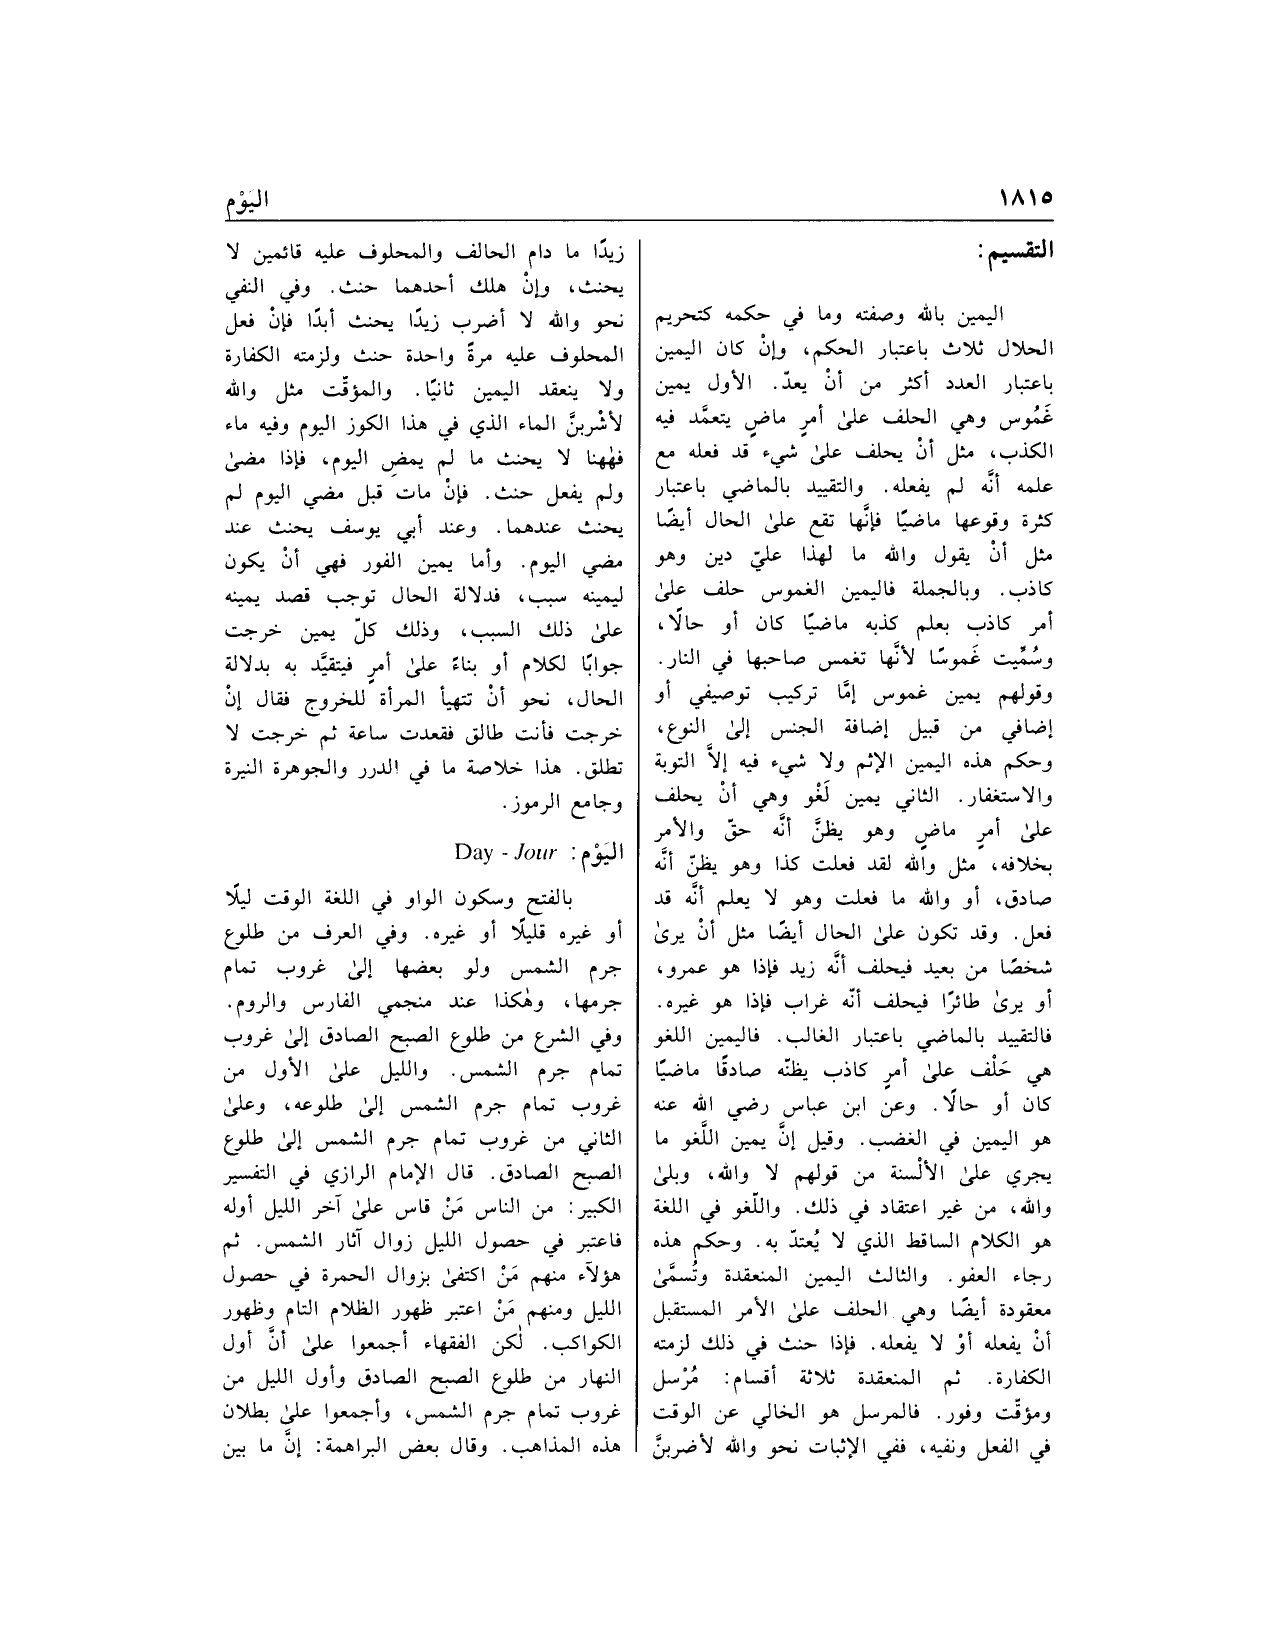 ١٨١٥
اليَوْم
التقسيم:
اليمين بالله وصفته وما في حكمه كتحريم
الحلال ثلاث باعتبار الحكم، وإنْ كان اليمين
باعتبار العدد أكثر من أنْ يعدّ. الأول يمين
غَمُوس وهي الحلف علىٰ أمرٍ ماضٍ يتعمَّد فيه
الكذب، مثل أنْ يحلف علىٰ شيء قد فعله مع
علمه أنَّه لم يفعله. والتقييد بالماضي باعتبار
كثرة وقوعها ماضيًا فإنَّها تقع علىٰ الحال أيضًا
مثل أنْ يقول والله ما لهذا عليّ دين وهو
كاذب. وبالجملة فاليمين الغموس حلف علىٰ
أمر كاذب بعلم كذبه ماضيًا كان أو حالًا،
وسُمِّيت غَموسًا لأنَّها تغمس صاحبها في النار.
وقولهم يمين غموس إمَّا تركيب توصيفي أو
إضافي من قبيل إضافة الجنس إلىٰ النوع،
وحكم هذه اليمين الإثم ولا شيء فيه إلاَّ التوبة
والاستغفار. الثاني يمين لَغْو وهي أنْ يحلف
علىٰ أمرٍ ماضٍ وهو يظنَّ أنَّه حقّ والأمر
بخلافه، مثل والله لقد فعلت كذا وهو يظنّ أنَّه
صادق، أو والله ما فعلت وهو لا يعلم أنَّه قد
فعل. وقد تكون علىٰ الحال أيضًا مثل أنْ يرىٰ
شخصًا من بعيد فيحلف أنَّه زيد فإذا هو عمرو،
أو يرىٰ طائرًا فيحلف أنّه غراب فإذا هو غيره.
فالتقييد بالماضي باعتبار الغالب. فاليمين اللغو
هي حَلْف علىٰ أمرٍ كاذب يظنّه صادقًا ماضيًا
كان أو حالًا. وعن ابن عباس رضي الله عنه
هو اليمين في الغضب. وقيل إنَّ يمين اللَّغو ما
يجري علىٰ الألْسنة من قولهم لا والله، وبلىٰ
والله، من غير اعتقاد في ذلك. واللّغو في اللغة
هو الكلام الساقط الذي لا يُعتدّ به. وحكم هذه
رجاء العفو. والثالث اليمين المنعقدة وتُسمَّىٰ
معقودة أيضًا وهي الحلف علىٰ الأمر المستقبل
أنْ يفعله أوْ لا يفعله. فإذا حنث في ذلك لزمته
الكفارة. ثم المنعقدة ثلاثة أقسام: مُرْسل
ومؤقّت وفور. فالمرسل هو الخالي عن الوقت
في الفعل ونفيه، ففي الإثبات نحو والله لأضربنَّ
زيدًا ما دام الحالف والمحلوف عليه قائمين لا
يحنث، وإنْ هلك أحدهما حنث. وفي النفي
نحو والله لا أضرب زيدًا يحنث أبدًا فإنْ فعل
المحلوف عليه مرةً واحدة حنث ولزمته الكفارة
ولا ينعقد اليمين ثانيًا. والمؤقّت مثل والله
لأشْربنَّ الماء الذي في هذا الكوز اليوم وفيه ماء
فهٰهنا لا يحنث ما لم يمضِ اليوم، فإذا مضىٰ
ولم يفعل حنث. فإنْ مات قبل مضي اليوم لم
يحنث عندهما. وعند أبي يوسف يحنث عند
مضي اليوم. وأما يمين الفور فهي أنْ يكون
ليمينه سبب، فدلالة الحال توجب قصد يمينه
علىٰ ذلك السبب، وذلك كلّ يمين خرجت
جوابًا لكلام أو بناءً علىٰ أمرٍ فيتقيَّد به بدلالة
الحال، نحو أنْ تتهيأ المرأة للخروج فقال إنْ
خرجت فأنت طالق فقعدت ساعة ثم خرجت لا
تطلق. هذا خلاصة ما في الدرر والجوهرة النيرة
وجامع الرموز.
اليَوْم: Day - Jour
بالفتح وسكون الواو في اللغة الوقت ليلًا
أو غيره قليلًا أو غيره. وفي العرف من طلوع
جرم الشمس ولو بعضها إلىٰ غروب تمام
جرمها، وهٰكذا عند منجمي الفارس والروم.
وفي الشرع من طلوع الصبح الصادق إلىٰ غروب
تمام جرم الشمس. والليل علىٰ الأول من
غروب تمام جرم الشمس إلىٰ طلوعه، وعلىٰ
الثاني من غروب تمام جرم الشمس إلىٰ طلوع
الصبح الصادق. قال الإمام الرازي في التفسير
الكبير: من الناس مَنْ قاس علىٰ آخر الليل أوله
فاعتبر في حصول الليل زوال آثار الشمس. ثم
هؤلآء منهم مَنْ اكتفىٰ بزوال الحمرة في حصول
الليل ومنهم مَنْ اعتبر ظهور الظلام التام وظهور
الكواكب. لٰكن الفقهاء أجمعوا علىٰ أنَّ أول
النهار من طلوع الصبح الصادق وأول الليل من
غروب تمام جرم الشمس، وأجمعوا علىٰ بطلان
هذه المذاهب. وقال بعض البراهمة: إنَّ ما بين